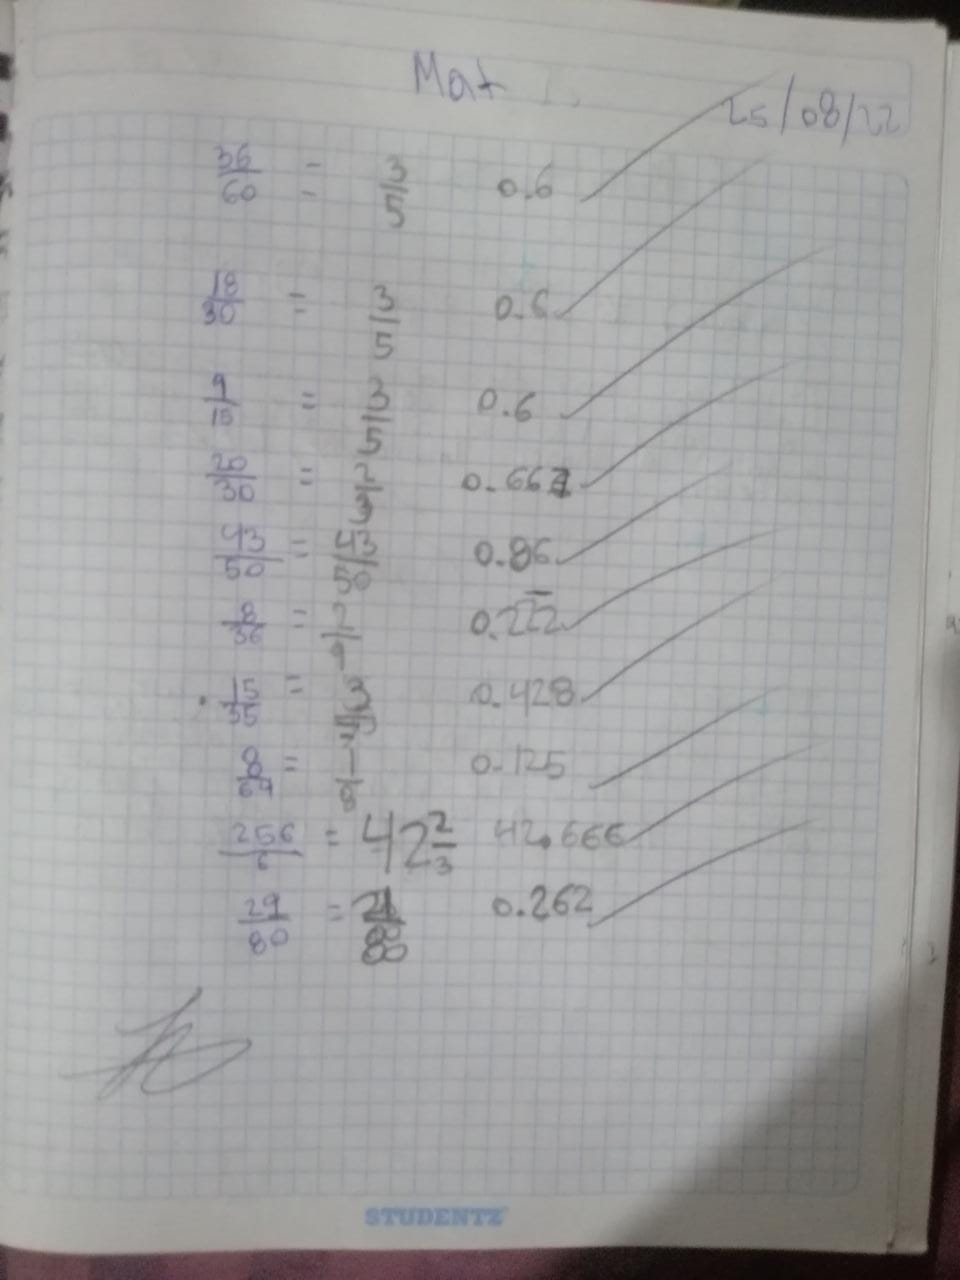 Mat
25/08/22
36/60 = 3/5 0.6
18/30 = 3/5 0.6
9/15 = 3/5 0.6
20/30 = 2/3 0.667
43/50 = 43/50 0.86
8/36 = 2/9 0.222
15/35 = 3/7 0.428
8/64 = 1/8 0.125
256/6 = 42 2/3 42.666
29/80 = 21/80 0.262
STUDENTZ